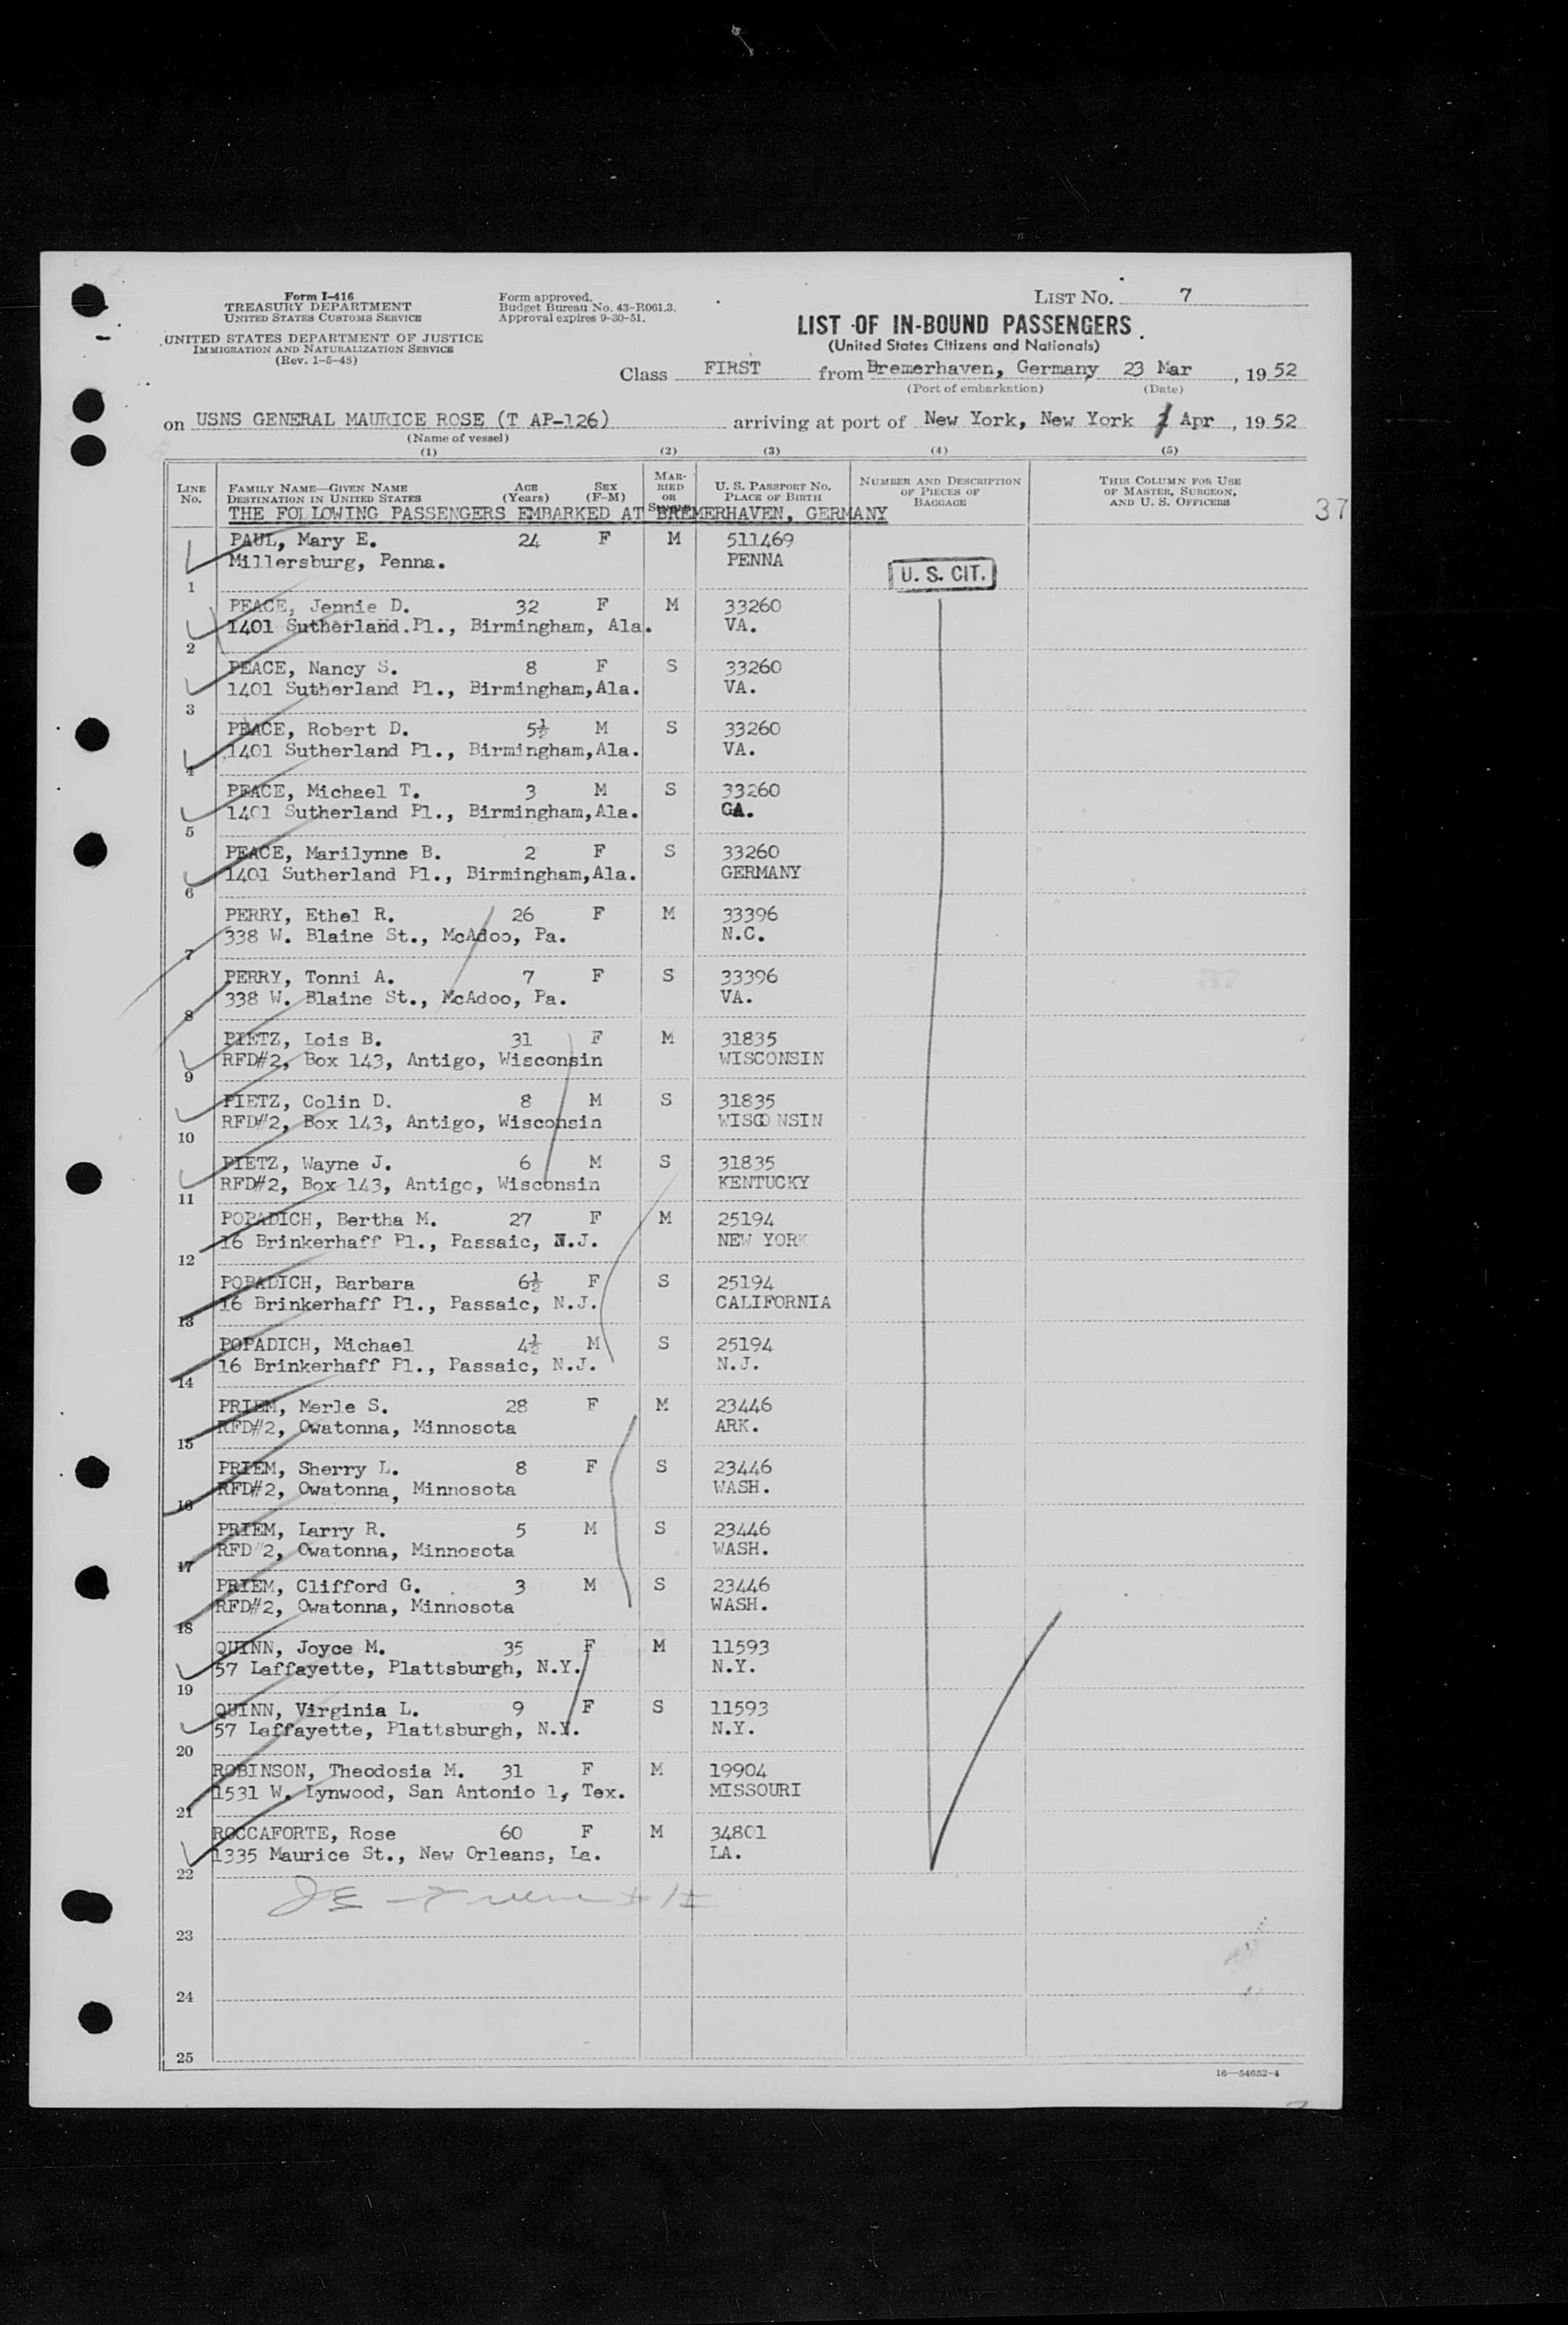 Form I-416
TREASURY DEPARTMENT
UNITED STATES CUSTOMS SERVICE
UNITED STATES DEPARTMENT OF JUSTICE
IMMIGRATION AND NATURALIZATION SERVICE
(Rev. 1-5-48)
Form approved.
Budget Bureau No. 43-R061.3.
Approval expires 9-30-51.
LIST NO. 7
LIST OF IN-BOUND PASSENGERS
(United States Citizens and Nationals)
Class FIRST from Bremerhaven, Germany 23 Mar, 1952
(Port of embarkation) (Date)
on USNS GENERAL MAURICE ROSE (T AP-126) arriving at port of New York, New York Apr, 1952
(Name of vessel)
(1) (2) (3) (4) (5)
LINE NO. FAMILY NAME—GIVEN NAME DESTINATION IN UNITED STATES AGE (Years) SEX (F-M) MARRIED OR U. S. PASSPORT NO. PLACE OF BIRTH NUMBER AND DESCRIPTION OF PIECES OF BAGGAGE THIS COLUMN FOR USE OF MASTER, SURGEON, AND U. S. OFFICERS
THE FOLLOWING PASSENGERS EMBARKED AT BREMERHAVEN, GERMANY
37
PAUL, Mary E. 24 F M 511469
Millersburg, Penna. PENNA
U. S. CIT.
1
PEACE, Jennie D. 32 F M 33260
1401 Sutherland.Pl., Birmingham, Ala. VA.
2
PEACE, Nancy S. 8 F S 33260
1401 Sutherland Pl., Birmingham,Ala. VA.
3
PEACE, Robert D. 5½ M S 33260
1401 Sutherland Pl., Birmingham,Ala. VA.
4
PEACE, Michael T. 3 M S 33260
1401 Sutherland Pl., Birmingham,Ala. GA.
5
PEACE, Marilynne B. 2 F S 33260
1401 Sutherland Pl., Birmingham,Ala. GERMANY
6
PERRY, Ethel R. 26 F M 33396
338 W. Blaine St., McAdoo, Pa. N.C.
7
PERRY, Tonni A. 7 F S 33396
338 W. Blaine St., McAdoo, Pa. VA.
8
PIETZ, Lois B. 31 F M 31835
RFD#2, Box 143, Antigo, Wisconsin WISCONSIN
9
PIETZ, Colin D. 8 M S 31835
RFD#2, Box 143, Antigo, Wisconsin WISCO NSIN
10
PIETZ, Wayne J. 6 M S 31835
RFD#2, Box 143, Antigo, Wisconsin KENTUCKY
11
POPADICH, Bertha M. 27 F M 25194
16 Brinkerhaff Pl., Passaic, N.J. NEW YORK
12
POPADICH, Barbara 6½ F S 25194
16 Brinkerhaff Pl., Passaic, N.J. CALIFORNIA
13
POPADICH, Michael 4½ M S 25194
16 Brinkerhaff Pl., Passaic, N.J. N.J.
14
PRIEM, Merle S. 28 F M 23446
RFD#2, Owatonna, Minnosota ARK.
15
PRIEM, Sherry L. 8 F S 23446
RFD#2, Owatonna, Minnosota WASH.
16
PRIEM, Larry R. 5 M S 23446
RFD#2, Owatonna, Minnosota WASH.
17
PRIEM, Clifford G. 3 M S 23446
RFD#2, Owatonna, Minnosota WASH.
18
QUINN, Joyce M. 35 F M 11593
57 Laffayette, Plattsburgh, N.Y. N.Y.
19
QUINN, Virginia L. 9 F S 11593
57 Laffayette, Plattsburgh, N.Y. N.Y.
20
ROBINSON, Theodosia M. 31 F M 19904
1531 W. Lynwood, San Antonio 1, Tex. MISSOURI
21
ROCCAFORTE, Rose 60 F M 34801
1335 Maurice St., New Orleans, La. LA.
22
23
24
25
16—54652-4